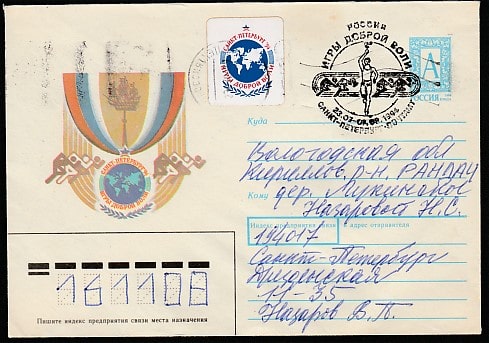 САНКТ-ПЕТЕРБУРГ 94
ИГРЫ ДОБРОЙ ВОЛИ
РОССИЯ
ИГРЫ ДОБРОЙ ВОЛИ
САНКТ-ПЕТЕРБУРГ
А
РОССИЯ
САНКТ-ПЕТЕРБУРГ 94
ИГРЫ ДОБРОЙ ВОЛИ
Куда
Вологодская обл
Кириллов. р-н
Кому
дер. Лукинское
Назаровой Н.С.
Индекс предприятия связи и адрес отправителя
194017
Санкт-Петербург
Дрезденская
11-35
Назаров В.П.
161108
Пишите индекс предприятия связи места назначения